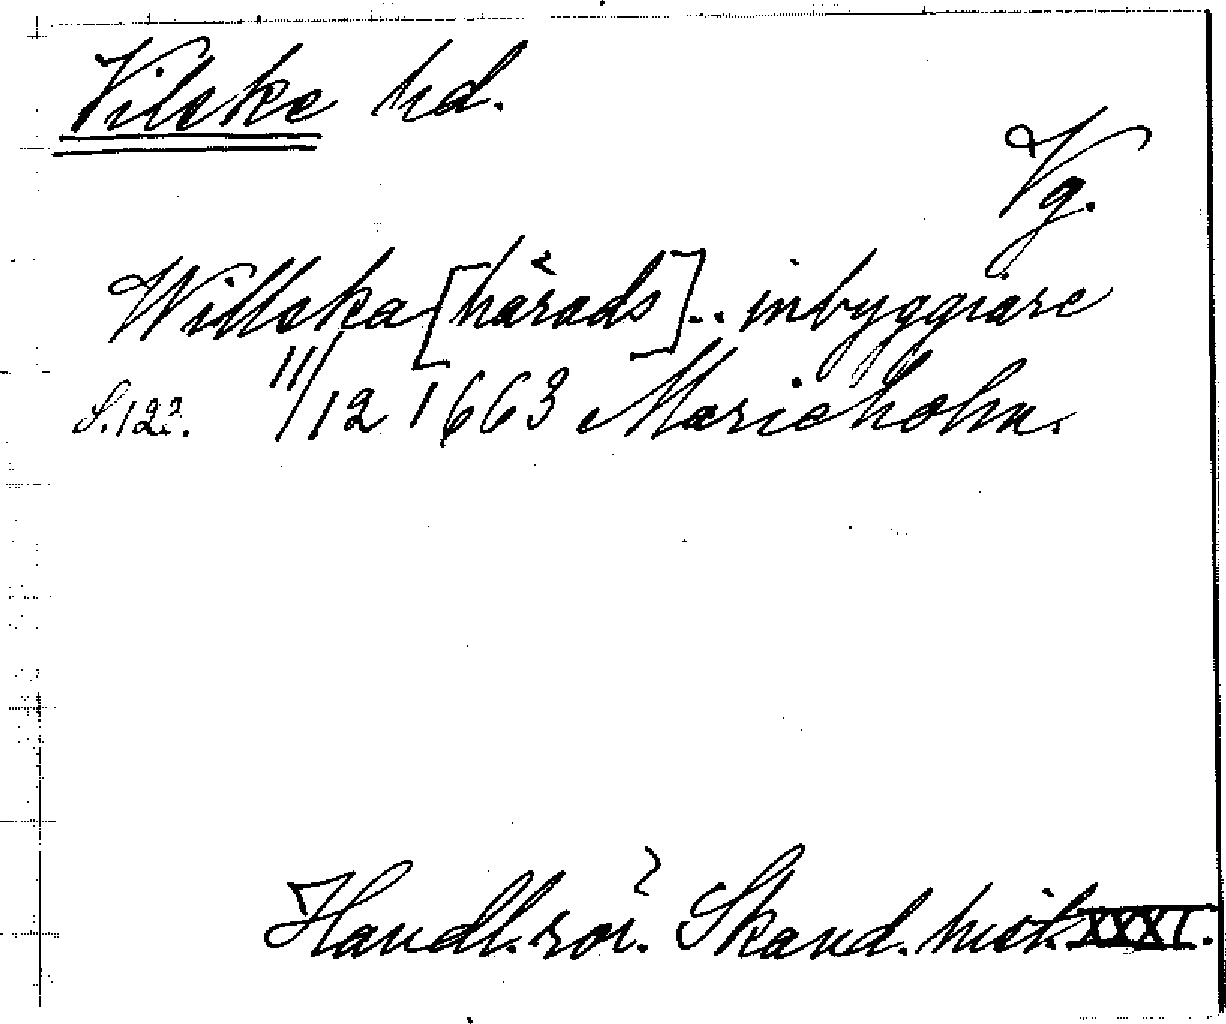 Vilske hd.
Vg.
Willska [härads].. inbyggiare
S.122. 11/12 1663 Marieholm.
Handl. rör. Skand. hist. XXXI.